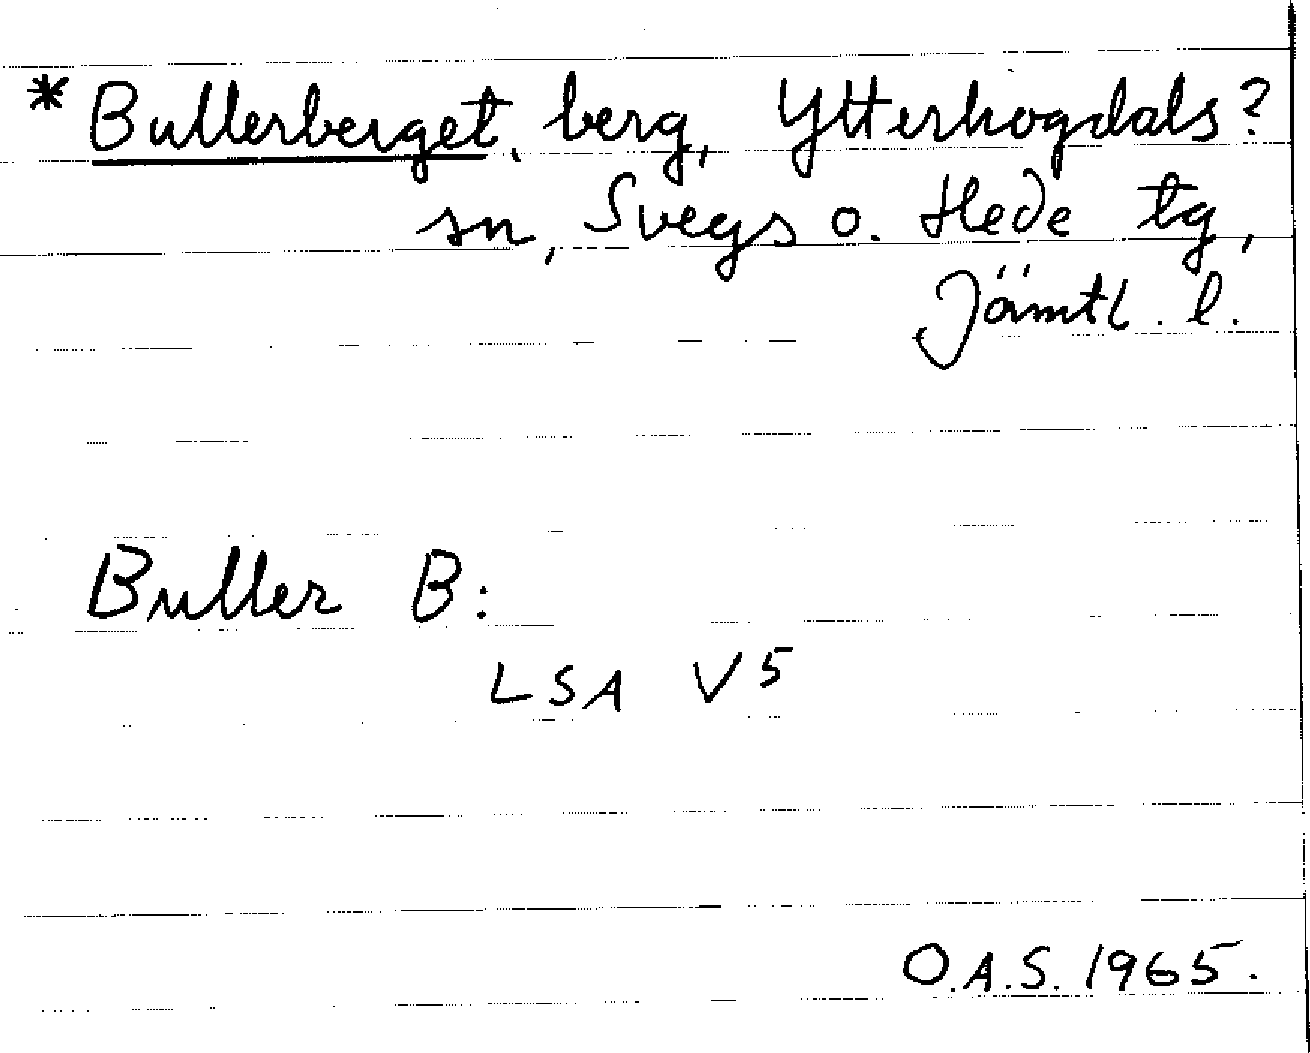 * Bullerberget, berg, Ytterhogdals?
sn, Svegs o. Hede tg,
Jämtl. l.
Buller B:
LSA V5
O.A.S. 1965.